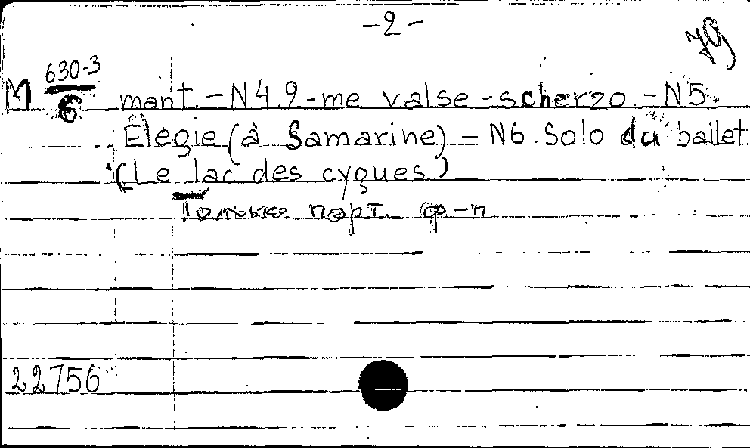 -2-
79
М 630-3
6
mant - N4.2-me valse-scherzo - N5.
Élégie (à Samarine) - N6. Solo du ballet
(Le lac des cygues)
Только парт. ф-п
22756